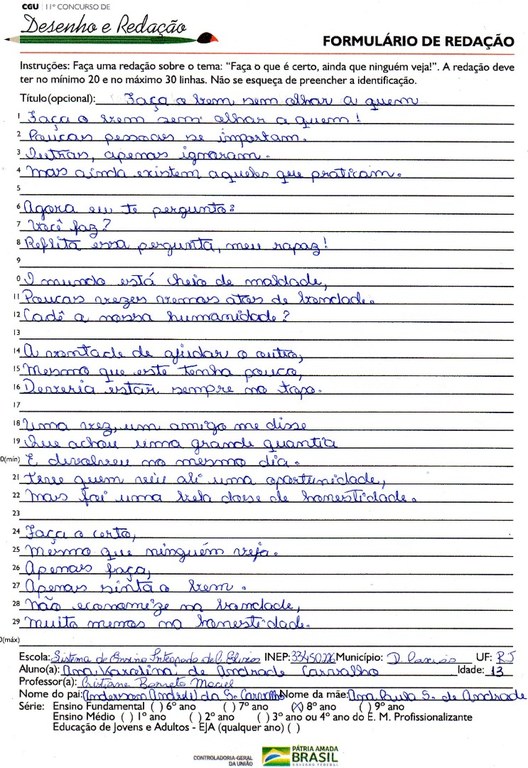 CGU | 11º CONCURSO DE
Desenho e Redação
FORMULÁRIO DE REDAÇÃO
Instruções: Faça uma redação sobre o tema: "Faça o que é certo, ainda que ninguém veja!". A redação deve
ter no mínimo 20 e no máximo 30 linhas. Não se esqueça de preencher a identificação.
Título(opcional): Faça o bem sem olhar a quem
1 Faça o bem sem olhar a quem!
2 Poucas pessoas se importam.
3 Outras, apenas ignoram.
4 Mas ainda existem aqueles que praticam.
5
6 Agora eu te pergunto:
7 Você faz?
8 Reflita essa pergunta, meu rapaz!
9
0 O mundo está cheio de maldade,
11 Poucas vezes vemos atos de bondade.
12 Cadê a nossa humanidade?
13
14 A vontade de ajudar o outro,
15 Mesmo que este tenha pouco,
16 Deveria estar sempre no topo.
17
18 Uma vez, um amigo me disse
19 Que achou uma grande quantia
0(mín) E devolveu no mesmo dia.
21 Teve quem veio ali uma oportunidade,
22 Mas foi uma bela dose de honestidade.
23
24 Faça o certo,
25 Mesmo que ninguém veja.
26 Apenas faça,
27 Apenas sinta o bem.
28 Não economize na bondade,
29 Muito menos na honestidade.
0(máx)
Escola: Sistema de Ensino Integrado INEP: Município: D Caxias UF: RJ
Aluno(a): Ana Karolina de Andrade Carvalho Idade: 13
Professor(a): Cristiane Barreto Maciel
Nome do pai: Anderson da S. Carvalho Nome da mãe: Ana S. de Andrade
Série: Ensino Fundamental ( ) 6º ano ( ) 7º ano (X) 8º ano ( ) 9º ano
Ensino Médio ( ) 1º ano ( ) 2º ano ( ) 3º ano ou 4º ano do E. M. Profissionalizante
Educação de Jovens e Adultos - EJA (qualquer ano) ( )
CONTROLADORIA-GERAL
DA UNIÃO
PÁTRIA AMADA
BRASIL
GOVERNO FEDERAL